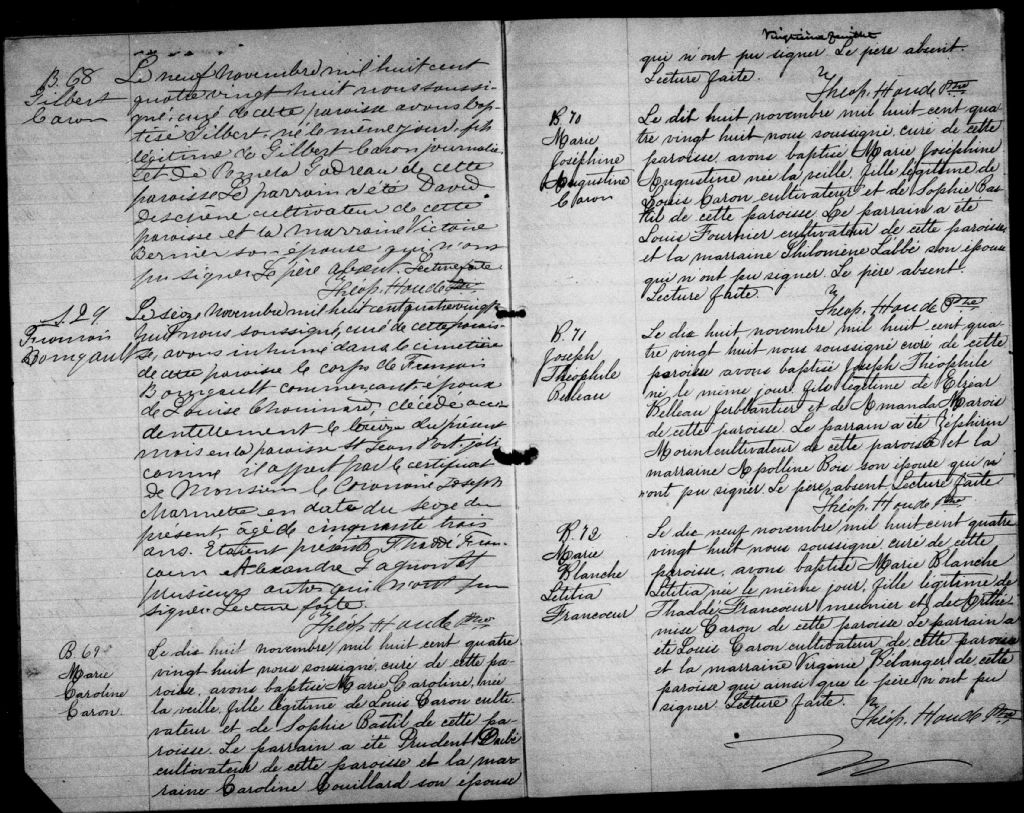 B. 68
Gilbert
Caron
Le neuf novembre mil huit cent
quatre vingt huit nous soussi-
gné, curé de cette paroisse avons bap-
tisé Gilbert, né le même jour, fils
légitime de Gilbert Caron journalier
et de Godreau de cette
paroisse Le parrain a été David
cultivateur de cette
paroisse et la marraine Victoire
Bernier son épouse qui n'ont
pu signer Le père absent. Lecture faite
Théop. Houde Ptre
S. 29
François
Bourgault
Le seize novembre mil huit cent quatre vingt
huit nous soussigné, curé de cette parois-
se, avons inhumé dans le cimetière
de cette paroisse le corps de François
Bourgault commerçant époux
de Louise Chouinard, décédé acci-
dentellement le du présent
mois en la paroisse St Jean Port-joli
comme il appert par le certificat
de Monsieur le Coronaire Joseph
Marmette en date du seize du
présent, âgé de cinquante trois
ans. Etaient présents Thaddé Fran-
coeur et Alexandre Gagnon et
plusieurs autres qui n'ont pu
signer. Lecture faite.
Théop. Houde Ptre
B 69
Marie
Caroline
Caron.
Le dix huit novembre mil huit cent quatre
vingt huit nous soussigné, curé de cette pa-
roisse, avons baptisé Marie Caroline, née
la veille, fille légitime de Louis Caron culti-
vateur et de Sophie Bastil de cette pa-
roisse. Le parrain a été Prudent Dubé
cultivateur de cette paroisse et la mar-
raine Caroline Couillard son épouse
Vingtième feuillet
qui n'ont pu signer Le père absent.
Lecture faite.
Théop. Houde Ptre
B. 70
Marie
Joséphine
Augustine
Caron
Le dix huit novembre mil huit-cent qua-
tre vingt huit nous soussigné, curé de cette
paroisse, avons baptisé Marie Joséphine
Augustine née la veille, fille légitime de
Louis Caron cultivateur et de Sophie Bas-
til de cette paroisse Le parrain a été
Louis Fournier cultivateur de cette paroisse
et la marraine Philomène Labbé son épouse
qui n'ont pu signer. Le père absent.
Lecture faite.
Théop. Houde Ptre
B. 71
Joseph
Théophile
Belleau
Le dix huit novembre mil huit cent qua-
tre vingt huit nous soussigné curé de cette
paroisse avons baptisé Joseph Théophile
né le même jour, fils légitime de Elzéar
Belleau ferblantier et de Amanda Marois
de cette paroisse. Le parrain a été Zéphirin
Morin cultivateur de cette paroisse et la
marraine Apolline Bois son épouse qui n'
ont pu signer. Le père absent Lecture faite
Théop. Houde Ptre
B. 72
Marie
Blanche
Létitia
Francoeur
Le dix neuf novembre mil huit cent quatre
vingt huit nous soussigné, curé de cette
paroisse, avons baptisé Marie Blanche
Létitia née le même jour, fille légitime de
Thaddé Francoeur meunier et de Arthé-
mise Caron de cette paroisse Le parrain a
été Louis Caron cultivateur de cette paroisse
et la marraine Virginie Bélanger de cette
paroisse qui ainsi que le père n'ont pu
signer Lecture faite.
Théop. Houde Ptre